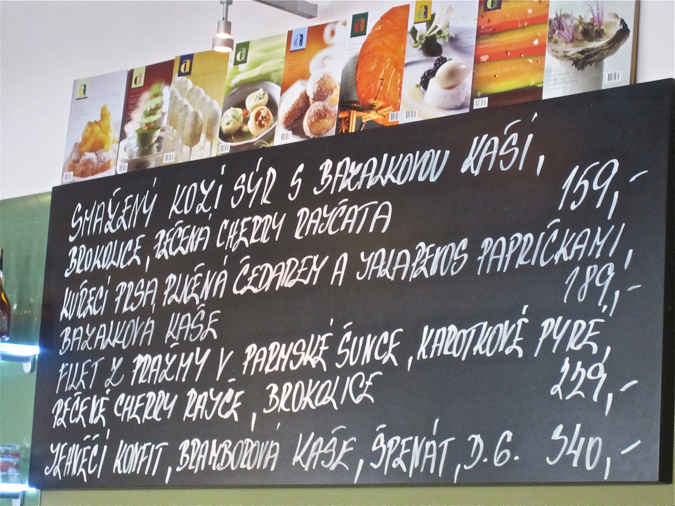 SMAŽENÝ KOZÍ SÝR S BAZALKOVOU KAŠÍ,
BROKOLICE, PEČENÁ CHERRY RAJČATA 159,-
KUŘECÍ PRSA PLNĚNÁ ČEDAREM A JALAPEŇOS PAPRIČKAMI,
BAZALKOVÁ KAŠE 189,-
FILET Z PRAŽMY V PARMSKÉ ŠUNCE, KAROTKOVÉ PYRÉ,
PEČENÉ CHERRY RAJČE, BROKOLICE 229,-
JEHNĚČÍ KONFIT, BRAMBOROVÁ KAŠE, ŠPENÁT, D.G. 340,-